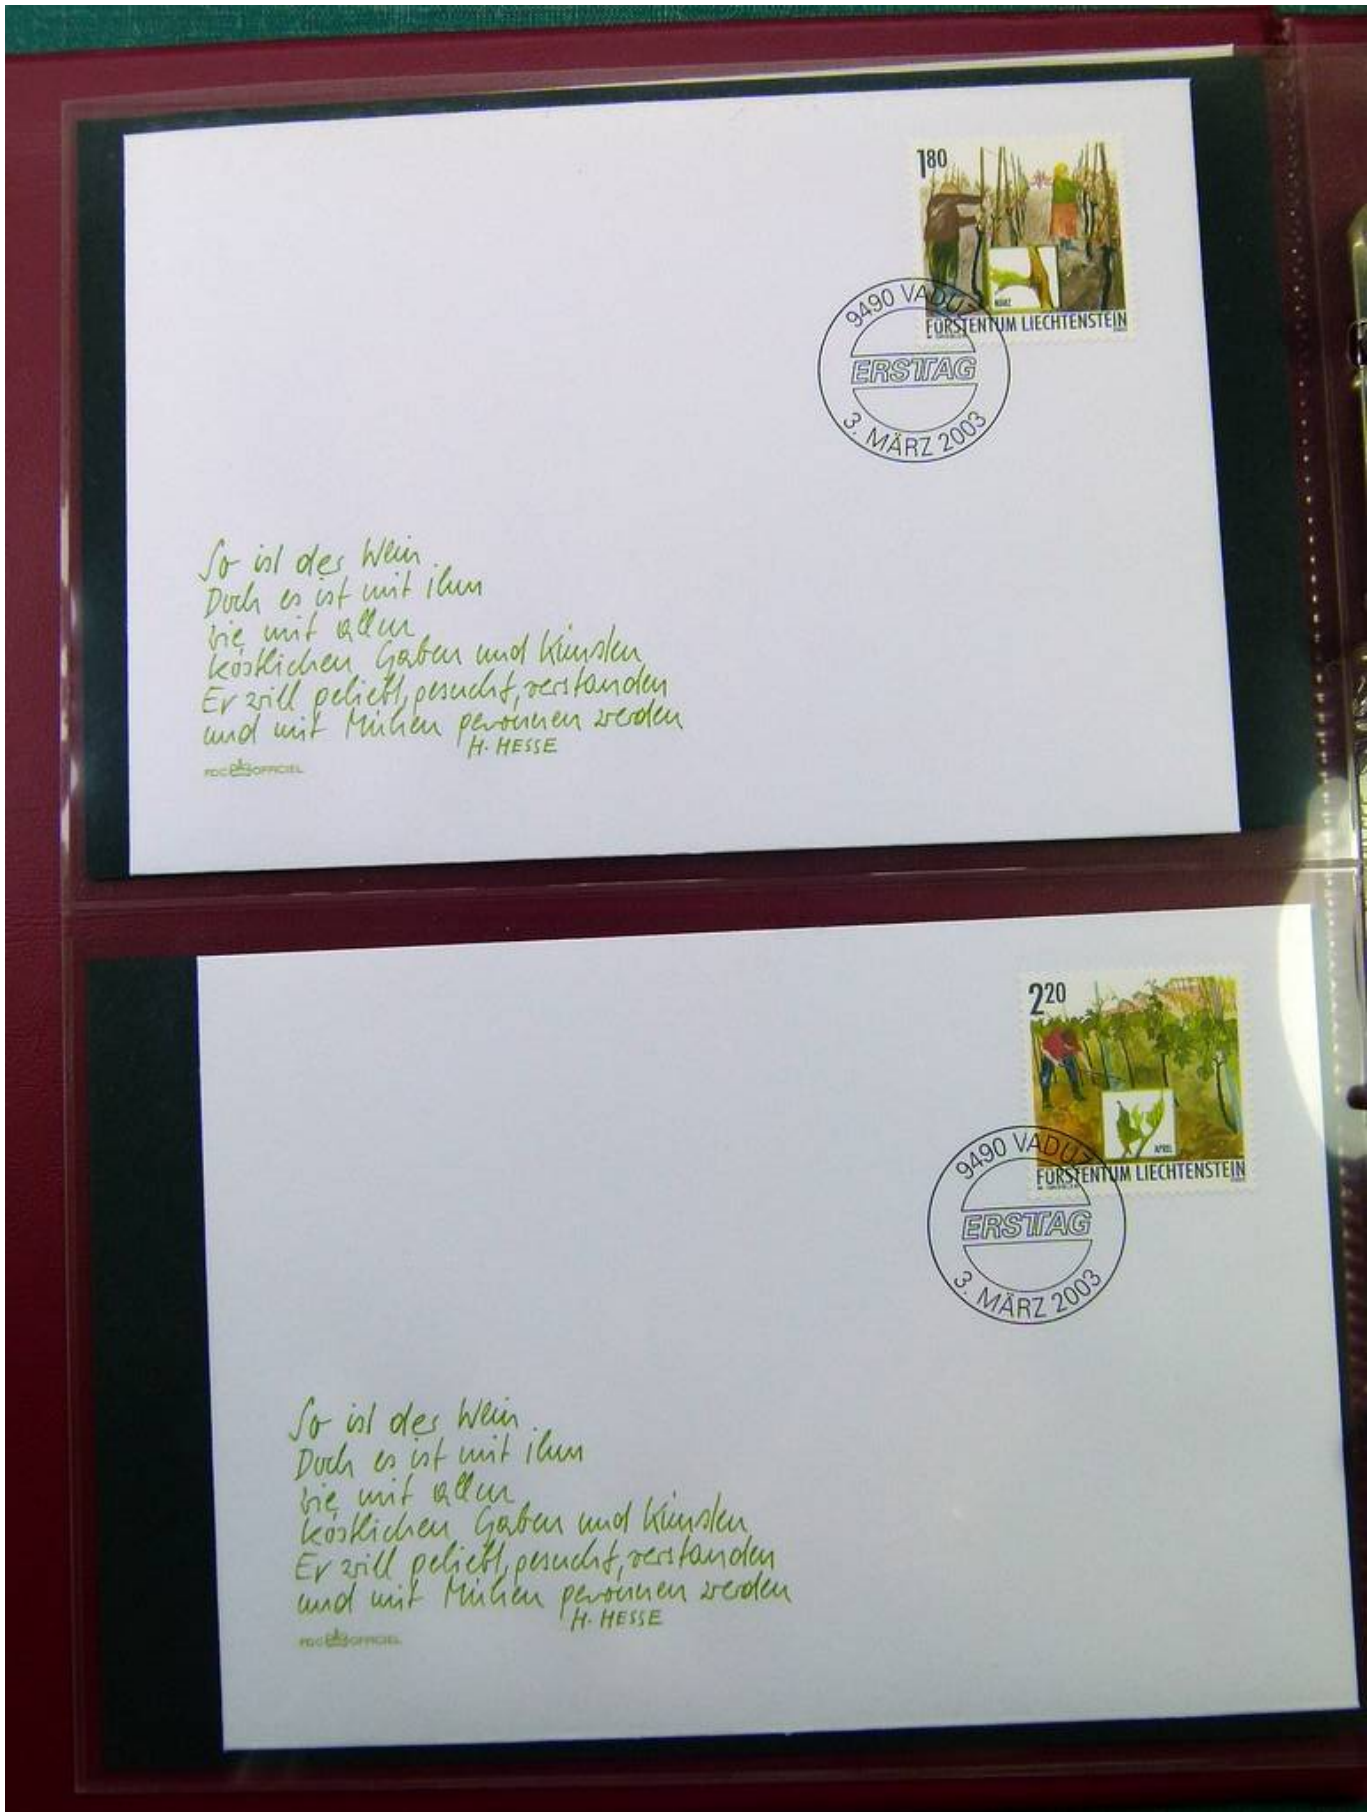 180
MÄRZ
FÜRSTENTUM LIECHTENSTEIN
9490 VADUZ
ERSTTAG
3. MÄRZ 2003
So ist der Wein.
Doch es ist mit ihm
wie mit allen
köstlichen Gaben und Künsten
Er will geliebt, gesucht, verstanden
und mit Mühen gewonnen werden
H. HESSE
FDC OFFICIEL
220
APRIL
FÜRSTENTUM LIECHTENSTEIN
9490 VADUZ
ERSTTAG
3. MÄRZ 2003
So ist der Wein.
Doch es ist mit ihm
wie mit allen
köstlichen Gaben und Künsten
Er will geliebt, gesucht, verstanden
und mit Mühen gewonnen werden
H. HESSE
FDC OFFICIEL